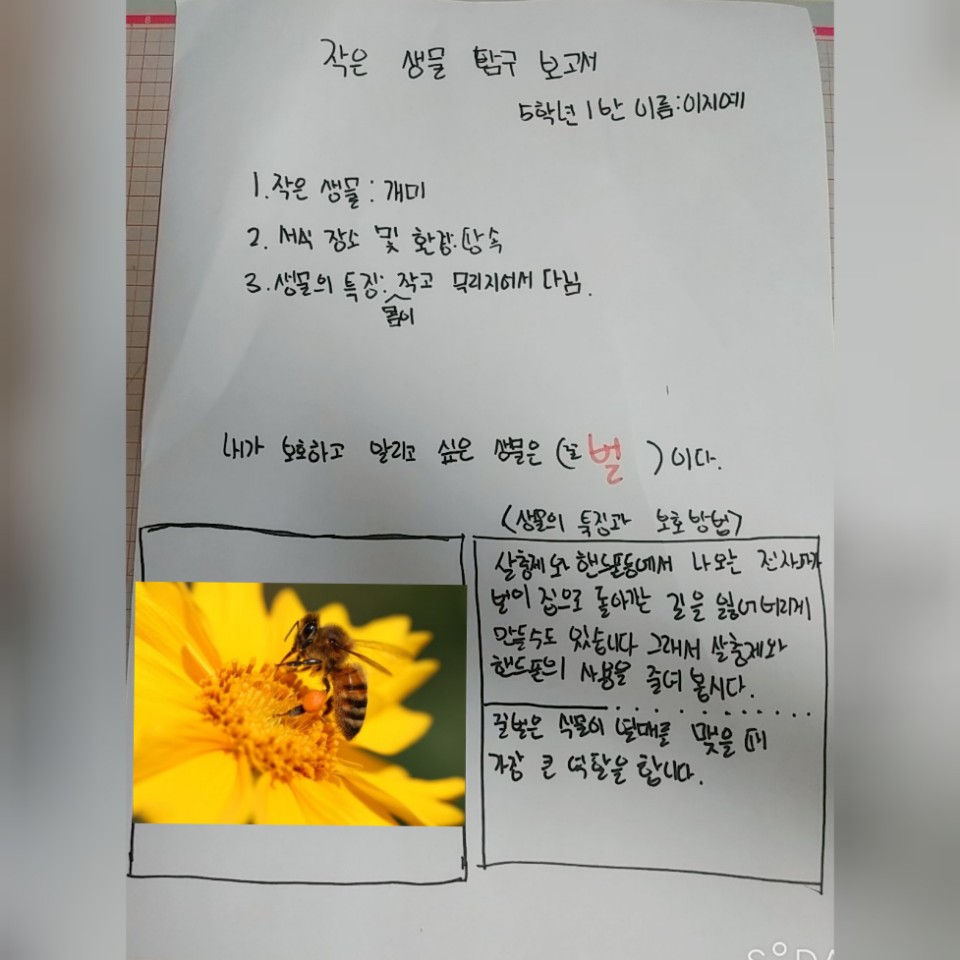 작은 생물 탐구 보고서
5학년 1반 이름:이지예
1. 작은 생물 : 개미
2. 서식 장소 및 환경:땅속
3. 생물의 특징: 작고 무리지어서 다님.
몸이
내가 보호하고 알리고 싶은 생물은 (꿀벌)이다.
<생물의 특징과 보호방법>
살충제와 핸드폰등에서 나오는 전자파가
벌이 집으로 돌아가는 길을 잃어버리게
만들수도 있습니다 그래서 살충제와
핸드폰의 사용을 줄여 봅시다.
꿀벌은 식물이 열매를 맺을 때
가장 큰 역할을 합니다.